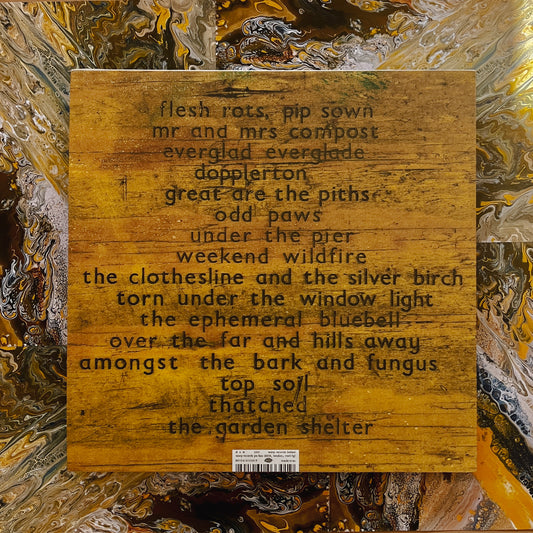 flesh rots, pip sown
mr and mrs compost
everglad everglade
dopplerton
great are the piths
odd paws
under the pier
weekend wildfire
the clothesline and the silver birch
torn under the window light
the ephemeral bluebell
over the far and hills away
amongst the bark and fungus
top soil
thatched
the garden shelter